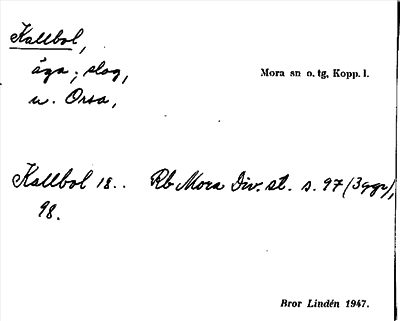 Kallbol,
äga; slog,
Mora sn o. tg, Kopp. l.
u. Orsa,
Kallbol 18.. Rb Mora Div. st. s. 97 (3 ggr),
98.
Bror Lindén 1947.